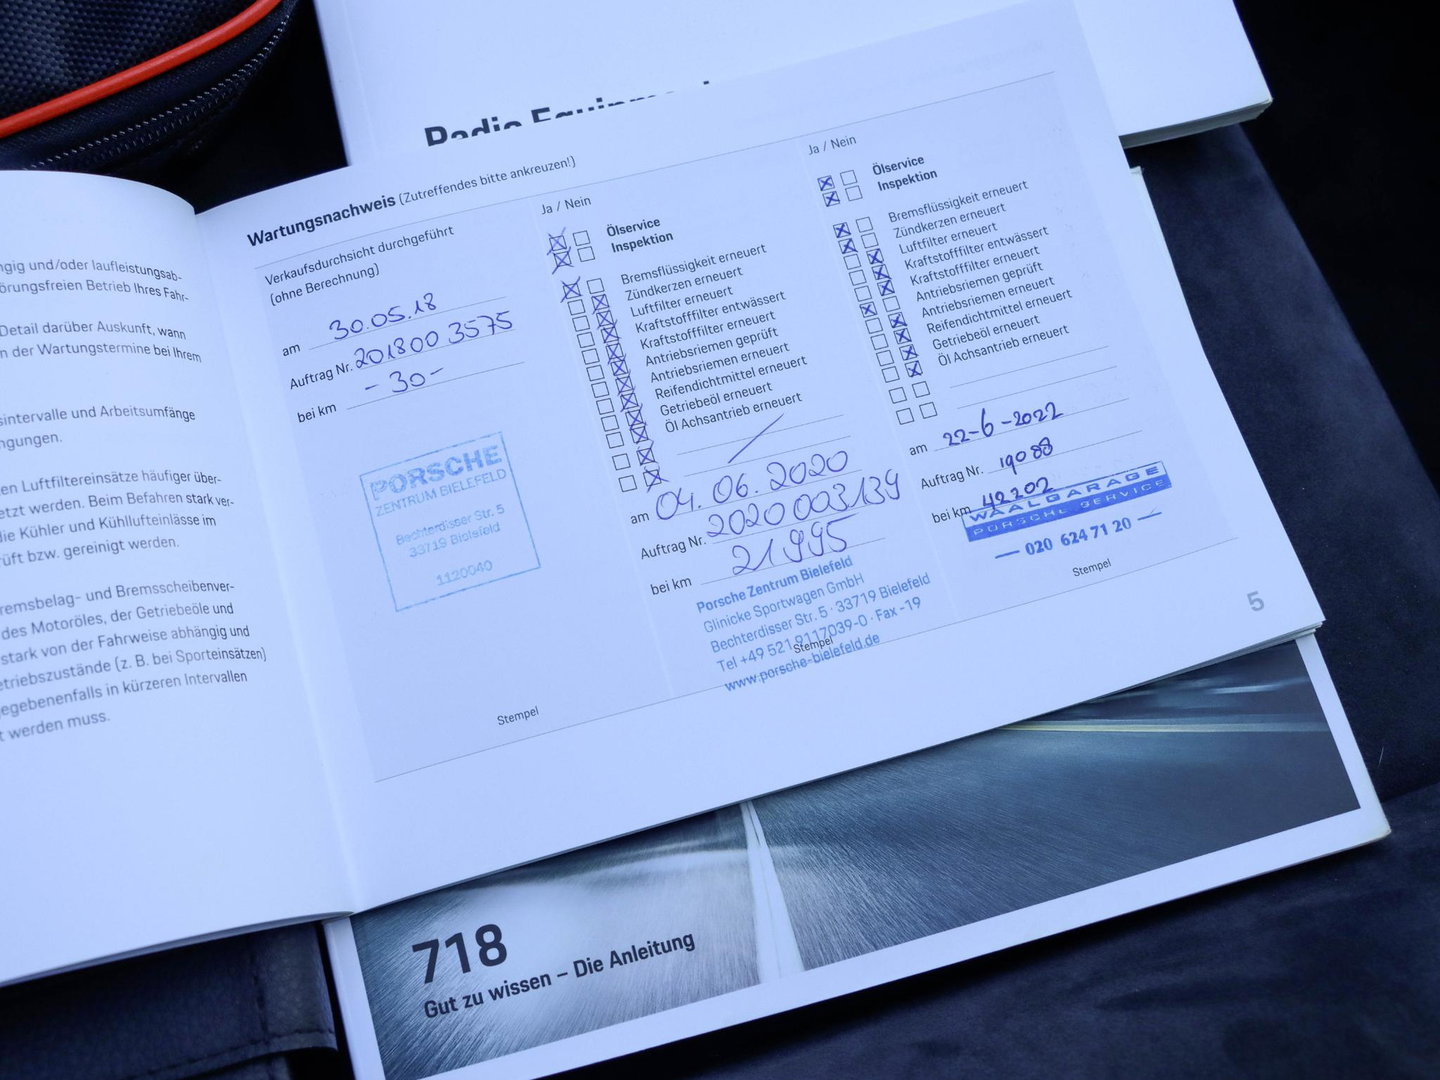 ngig und/oder laufleistungsab-
örungsfreien Betrieb Ihres Fahr-
Detail darüber Auskunft, wann
n der Wartungstermine bei Ihrem
sintervalle und Arbeitsumfänge
ngungen.
en Luftfiltereinsätze häufiger über-
etzt werden. Beim Befahren stark ver-
die Kühler und Kühllufteinlässe im
üft bzw. gereinigt werden.
remsbelag- und Bremsscheibenver-
des Motoröles, der Getriebeöle und
stark von der Fahrweise abhängig und
etriebszustände (z. B. bei Sporteinsätzen)
egebenenfalls in kürzeren Intervallen
t werden muss.
Radio
Wartungsnachweis (Zutreffendes bitte ankreuzen!)
Verkaufsdurchsicht durchgeführt
(ohne Berechnung)
am 30.05.18
Auftrag Nr. 201800 3575
bei km -30-
PORSCHE
ZENTRUM BIELEFELD
Bechterdisser Str. 5
33719 Bielefeld
1120040
Stempel
Ja / Nein
Ölservice
Inspektion
Bremsflüssigkeit erneuert
Zündkerzen erneuert
Luftfilter erneuert
Kraftstofffilter entwässert
Kraftstofffilter erneuert
Antriebsriemen geprüft
Antriebsriemen erneuert
Reifendichtmittel erneuert
Getriebeöl erneuert
Öl Achsantrieb erneuert
am 04.06.2020
Auftrag Nr. 2020 003139
bei km 21995
Porsche Zentrum Bielefeld
Glinicke Sportwagen GmbH
Bechterdisser Str. 5 · 33719 Bielefeld
Tel +49 521 9117039-0 · Fax -19
www.porsche-bielefeld.de
Stempel
Ja / Nein
Ölservice
Inspektion
Bremsflüssigkeit erneuert
Zündkerzen erneuert
Luftfilter erneuert
Kraftstofffilter entwässert
Kraftstofffilter erneuert
Antriebsriemen geprüft
Antriebsriemen erneuert
Reifendichtmittel erneuert
Getriebeöl erneuert
Öl Achsantrieb erneuert
am 22-6-2022
Auftrag Nr. 19088
bei km 42202
WAALGARAGE
PORSCHE SERVICE
— 020 624 71 20 —
Stempel
5
718
Gut zu wissen – Die Anleitung